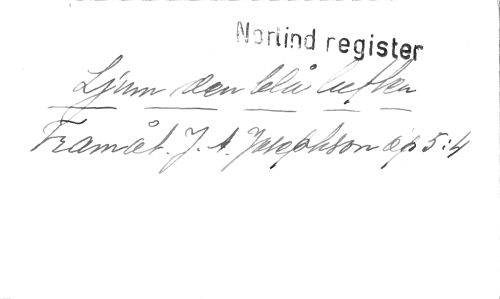 Norlind register
Ljum den blå luften
Framåt. J. A. Josephson op 5:4